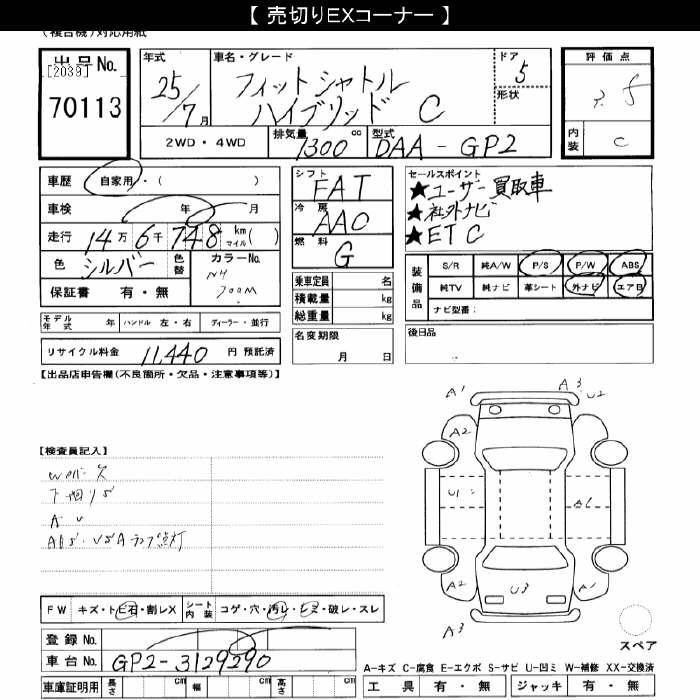 【 売切りEXコーナー 】
(複合機)対応用紙
出品No.
[2039]
70113
年式
25/7月
車名・グレード
フィットシャトル
ハイブリッド C
ドア
5
形状
評価点
内装
C
2WD・4WD
排気量
1300 cc
型式
DAA-GP2
車歴 自家用・( )
車検 年 月
走行 14万6千748 km マイル( )
色 シルバー 色替 カラーNo.
NH
700M
保証書 有・無
シフト
FAT
冷房
AAC
燃料
G
乗車定員 名
積載量 kg
総重量 kg
セールスポイント
★ユーザー買取車
★社外ナビ
★ETC
装備品
S/R 純A/W P/S P/W ABS
純TV 純ナビ 革シート 外ナビ エアB
ナビ型番：
モデル年式 年 ハンドル 左・右 ディーラー・並行
リサイクル料金 11,440 円 預託済
名変期限
月 日
後日品
【出品店申告欄(不良箇所・欠品・注意事項等)】
A1 A3 U2
A2
U1 A1
A2 U3 A1
A3
スペア
【検査員記入】
下回りS
ABS・VSAランプ点灯
FW キズ・トビ石・割レX シート内装 コゲ・穴・汚レ・シミ・破レ・スレ
登録No.
車台No. GP2-3129290
車庫証明用 長さ cm 幅 cm 高さ cm
A-キズ C-腐食 E-エクボ S-サビ U-凹ミ W-補修 XX-交換済
工具 有・無 ジャッキ 有・無